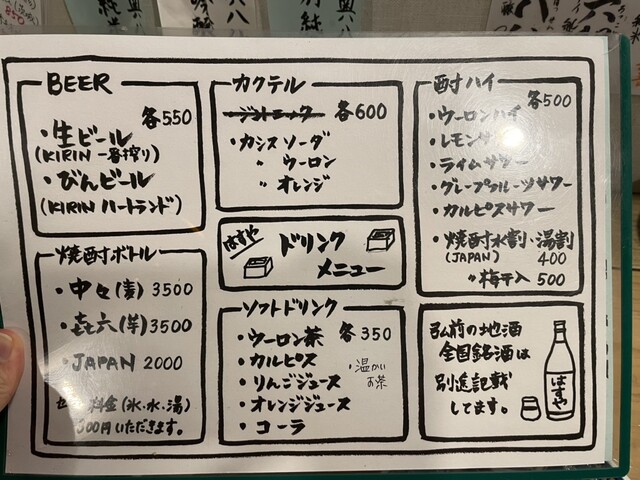 BEER
各550
・生ビール
(KIRIN 一番搾り)
・びんビール
(KIRIN ハートランド)
カクテル
各600
・カシスソーダ
〃 ウーロン
〃 オレンジ
酎ハイ
各500
・ウーロンハイ
・レモンサワー
・ライムサワー
・グレープフルーツサワー
・カルピスサワー
・焼酎水割・湯割
(JAPAN) 400
〃梅干入 500
はすや
ドリンク
メニュー
焼酎ボトル
・中々(麦) 3500
・㐂六(芋) 3500
・JAPAN 2000
料金(氷、水、湯)
300円いただきます。
ソフトドリンク
・ウーロン茶 各350
・カルピス
・りんごジュース
・オレンジジュース
・コーラ
・温かい
お茶
弘前の地酒
全国銘酒は
別途記載
してます。
はすや